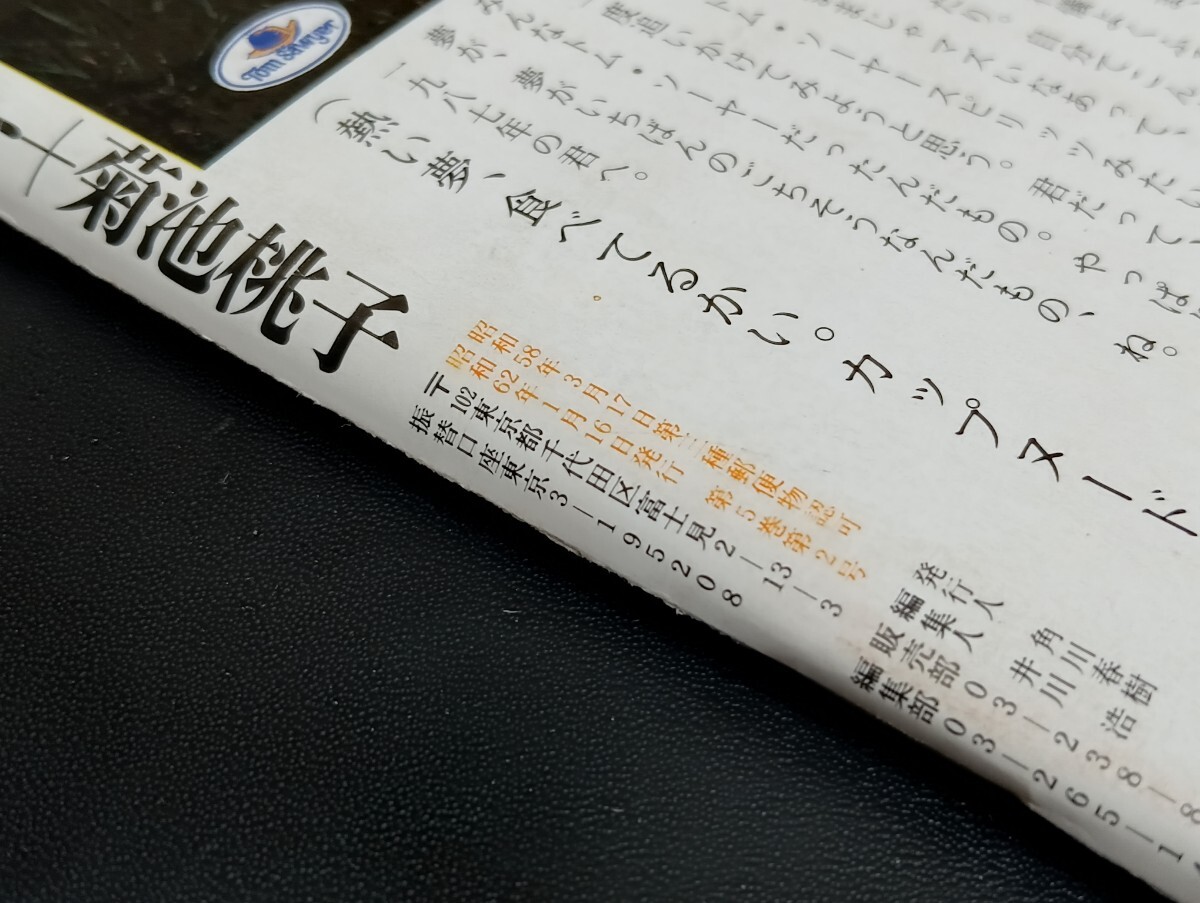 Tom Sawyer
度追いかけてみようと思う。君だって、
んなトム・ソーヤーだったんだもの。やっぱ
夢が、夢がいちばんのごちそうなんだもの、ね。
一九八七年の君へ。
(熱い夢、食べてるかい。カップヌード
菊池桃子
昭和58年3月17日第三種郵便物認可
昭和62年1月16日発行 第5巻第2号
〒102東京都千代田区富士見2-13-3
振替口座東京3-195208
発行人 角川春樹
編集人 井川浩
販売部 03-238-8
編集部 03-265-1